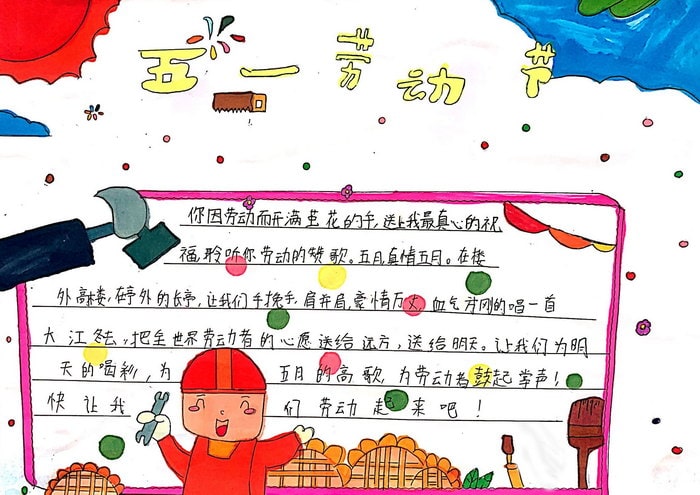 五一劳动节
你因劳动而开满茧花的手,送上我最真心的祝
福,聆听你劳动的赞歌。五月,真情五月。在楼
外高楼,在亭外的长亭,让我们手挽手,肩并肩,豪情万丈,血气方刚的唱一首
大江东去,把全世界劳动者的心愿送给远方,送给明天。让我们为明
天的喝彩,为五月的高歌,为劳动者鼓起掌声!
快让我们劳动起来吧!